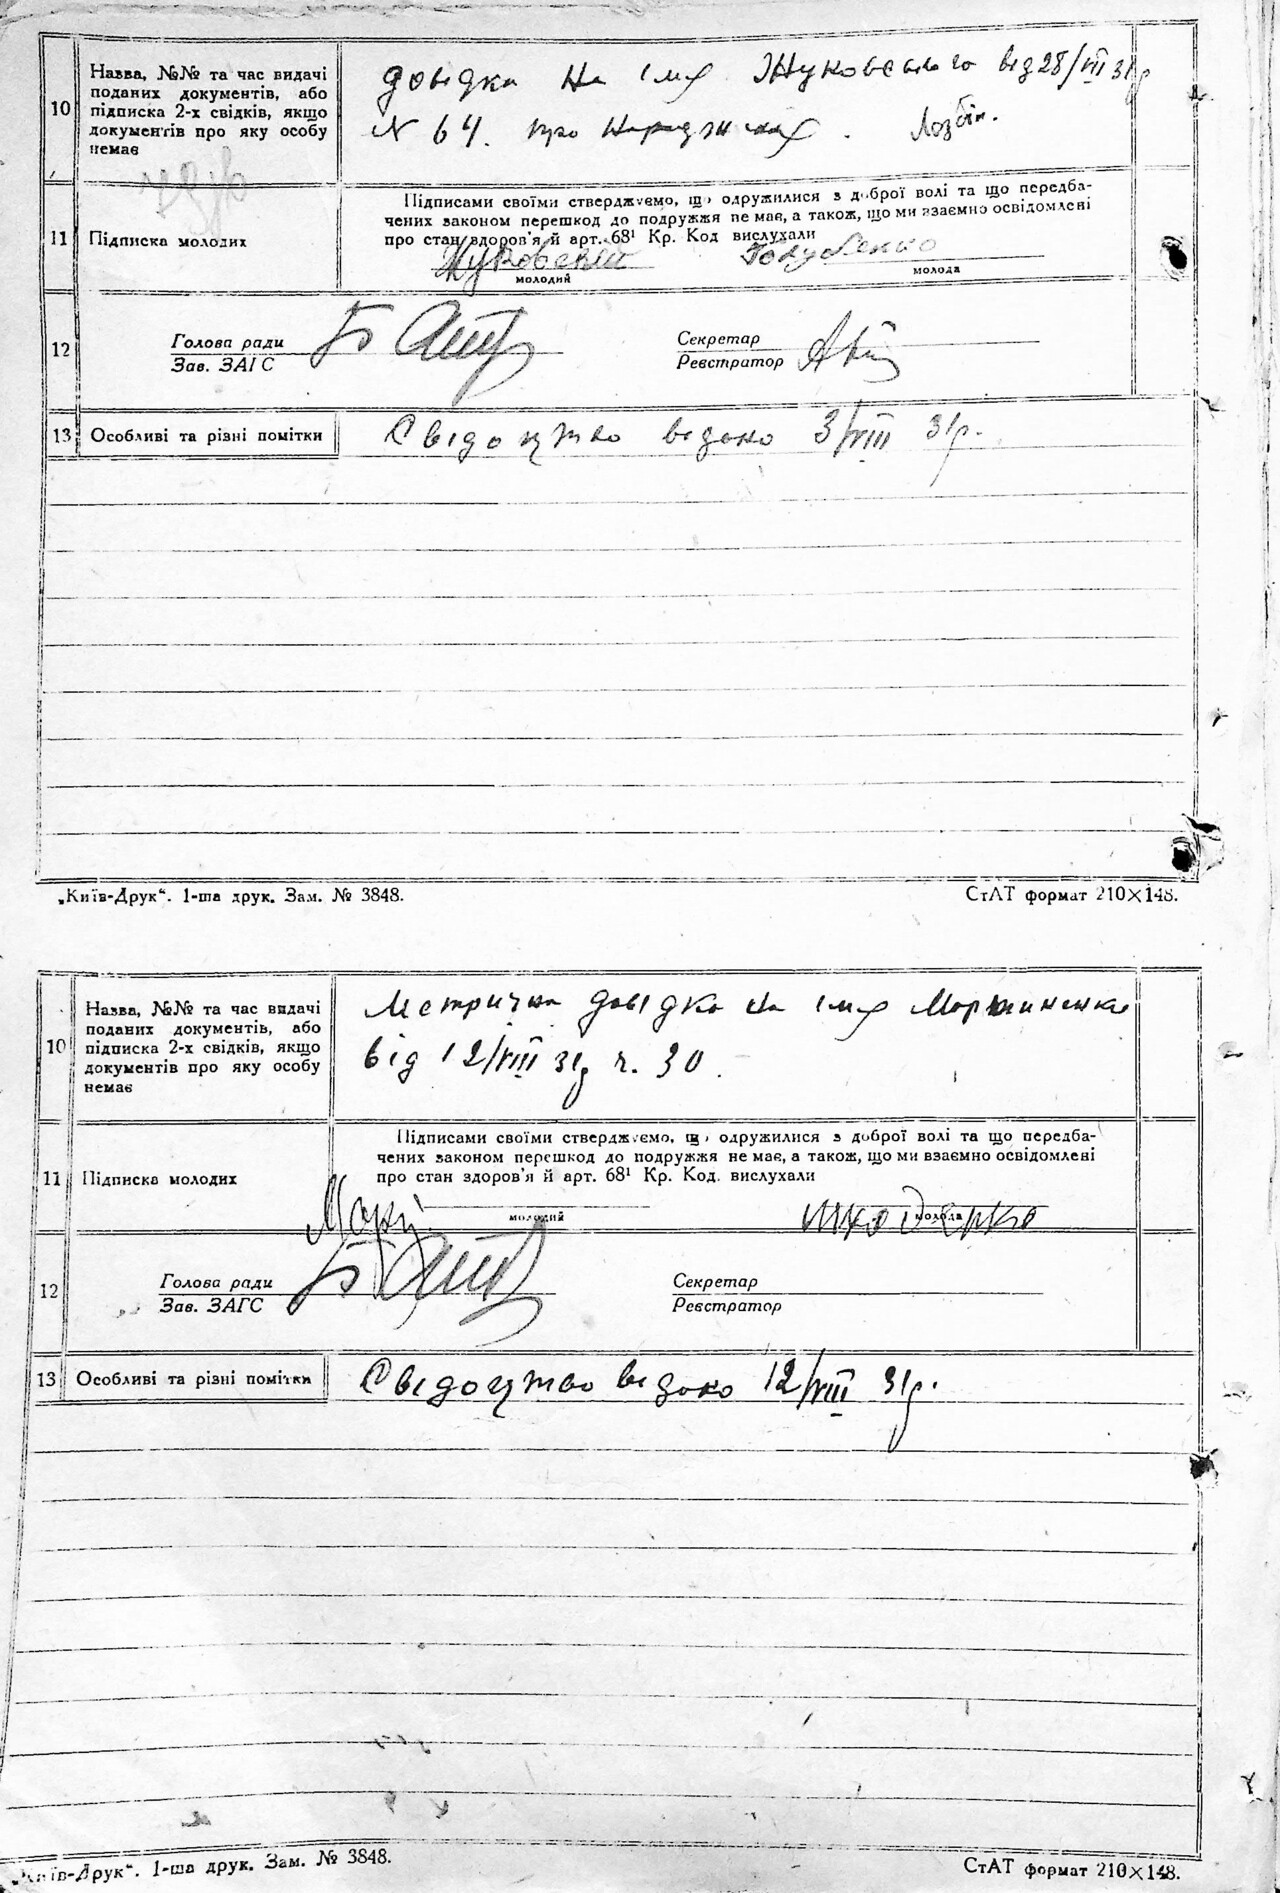 10
Назва, №№ та час видачі
поданих документів, або
підписка 2-х свідків, якщо
документів про яку особу
немає
довідка на імя Жуковського від 28/VII 31р
N 64. про народження.
11
Підписка молодих
Підписами своїми стверджуємо, що одружилися з доброї волі та що передба-
чених законом перешкод до подружжя немає, а також, що ми взаємно освідомлені
про стан здоров'я й арт. 68¹ Кр. Код вислухали
Жуковский Голубенко
молодий молода
12
Голова ради
Зав. ЗАГС
Секретар
Реєстратор
13
Особливі та різні помітки
Свідоцтво видано 3/VIII 31р.
„Київ-Друк“. 1-ша друк. Зам. № 3848.
СтАТ формат 210×148.
10
Назва, №№ та час видачі
поданих документів, або
підписка 2-х свідків, якщо
документів про яку особу
немає
Метрична довідка на імя
від 12/VIII 31р ч. 30.
11
Підписка молодих
Підписами своїми стверджуємо, що одружилися з доброї волі та що передба-
чених законом перешкод до подружжя немає, а також, що ми взаємно освідомлені
про стан здоров'я й арт. 68¹ Кр. Код. вислухали
молодий молода
12
Голова ради
Зав. ЗАГС
Секретар
Реєстратор
13
Особливі та різні помітки
Свідоцтво видано 12/VIII 31р.
„Київ-Друк“. 1-ша друк. Зам. № 3848.
СтАТ формат 210×148.